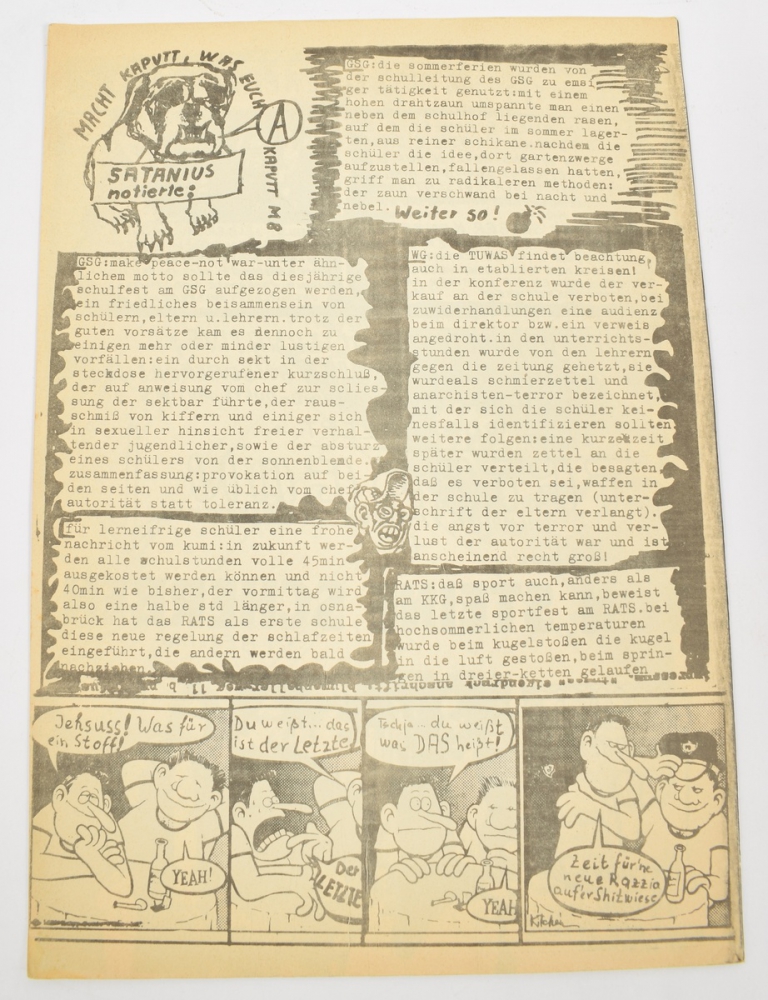 MACHT KAPUTT, WAS EUCH KAPUTT M8
A
SATANIUS
notierte:
GSG:die sommerferien wurden von
der schulleitung des GSG zu emsi
ger tätigkeit genutzt:mit einem
hohen drahtzaun umspannte man einen
neben dem schulhof liegenden rasen,
auf dem die schüler im sommer lager-
ten,aus reiner schikane.nachdem die
schüler die idee,dort gartenzwerge
aufzustellen,fallengelassen hatten,
griff man zu radikaleren methoden:
der zaun verschwand bei nacht und
nebel. Weiter so!
GSG:make-peace-not war-unter ähn-
lichem motto sollte das diesjährige
schulfest am GSG aufgezogen werden,
ein friedliches beisammensein von
schülern,eltern u.lehrern.trotz der
guten vorsätze kam es dennoch zu
einigen mehr oder minder lustigen
vorfällen:ein durch sekt in der
steckdose hervorgerufener kurzschluß,
der auf anweisung vom chef zur schlies-
sung der sektbar führte,der raus-
schmiß von kiffern und einiger sich
in sexueller hinsicht freier verhal-
tender jugendlicher,sowie der absturz
eines schülers von der sonnenblende.
zusammenfassung:provokation auf bei-
den seiten und wie üblich vom chef
autorität statt toleranz.
für lerneifrige schüler eine frohe
nachricht vom kumi:in zukunft wer-
den alle schulstunden volle 45min
ausgekostet werden können und nicht
40min wie bisher,der vormittag wird
also eine halbe std länger,in osna-
brück hat das RATS als erste schule
diese neue regelung der schlafzeiten
eingeführt,die andern werden bald
nachziehen.
WG:die TUWAS findet beachtung,
auch in etablierten kreisen!
in der konferenz wurde der ver-
kauf an der schule verboten,bei
zuwiderhandlungen eine audienz
beim direktor bzw.ein verweis
angedroht.in den unterrichts-
stunden wurde von den lehrern
gegen die zeitung gehetzt,sie
wurdeals schmierzettel und
anarchisten-terror bezeichnet,
mit der sich die schüler kei-
nesfalls identifizieren sollten.
weitere folgen:eine kurze zeit
später wurden zettel an die
schüler verteilt,die besagten,
daß es verboten sei,waffen in
der schule zu tragen (unter-
schrift der eltern verlangt).
die angst vor terror und ver-
lust der autorität war und ist
anscheinend recht groß!
RATS:daß sport auch,anders als
am KKG,spaß machen kann,beweist
das letzte sportfest am RATS.bei
hochsommerlichen temperaturen
wurde beim kugelstoßen die kugel
in die luft gestoßen,beim sprin-
gen in dreier-ketten gelaufen
eigendruck anschrift:
Jehsuss! Was für
ein Stoff!
YEAH!
Du weißt... das
ist der Letzte!
Der
LETZTE
Tschja... du weißt
was DAS heißt!
YEAH
Zeit für 'ne
neue Razzia
auf'er Shitwiese